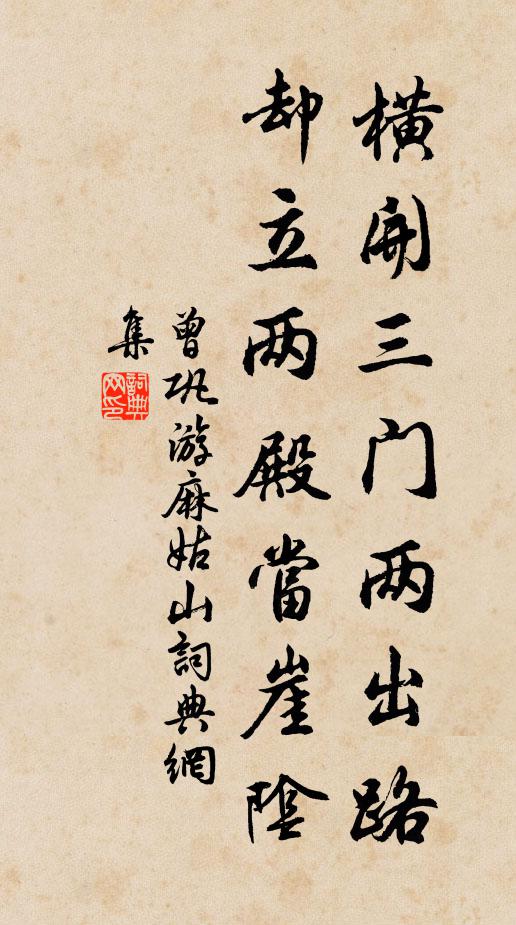 横開三门两出路
却立两殿當崖陰
曾巩游麻姑山詞典網
集
詞典网印